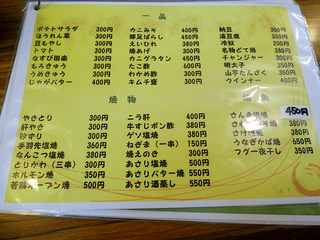 一品
ポテトサラダ 300円
ほうれん草 300円
豆もやし 300円
トマト 300円
なすび田楽 300円
もろきゅう 300円
うめきゅう 300円
じゃがバター 400円
カニみそ 400円
御飯ばらし
えいひれ 380円
焼あげ 300円
カニグラタン 400円
たこ酢 600円
わかめ酢 300円
キムチ壷 300円
納豆
湯豆腐
冷奴 200円
名物どて焼 380円
チャンジャー 300円
明太子 350円
山芋たんざく 350円
ウインナー 400円
焼物
やきとり 300円
肝やき 300円
砂ずり 300円
手羽先塩焼 350円
なんこつ塩焼 380円
とりかわ(三串) 300円
ホルモン焼 350円
若鶏オーブン焼 500円
ニラ肝 400円
牛すじポン酢 380円
ゲソ塩焼 380円
ねぎま(一串) 150円
焼えのき 300円
あさり塩焼 500円
あさりバター焼 550円
あさり酒蒸し 550円
450円
さんま塩焼
380円
さけ塩焼 380円
うなぎかば焼 650円
フグ一夜干し 350円